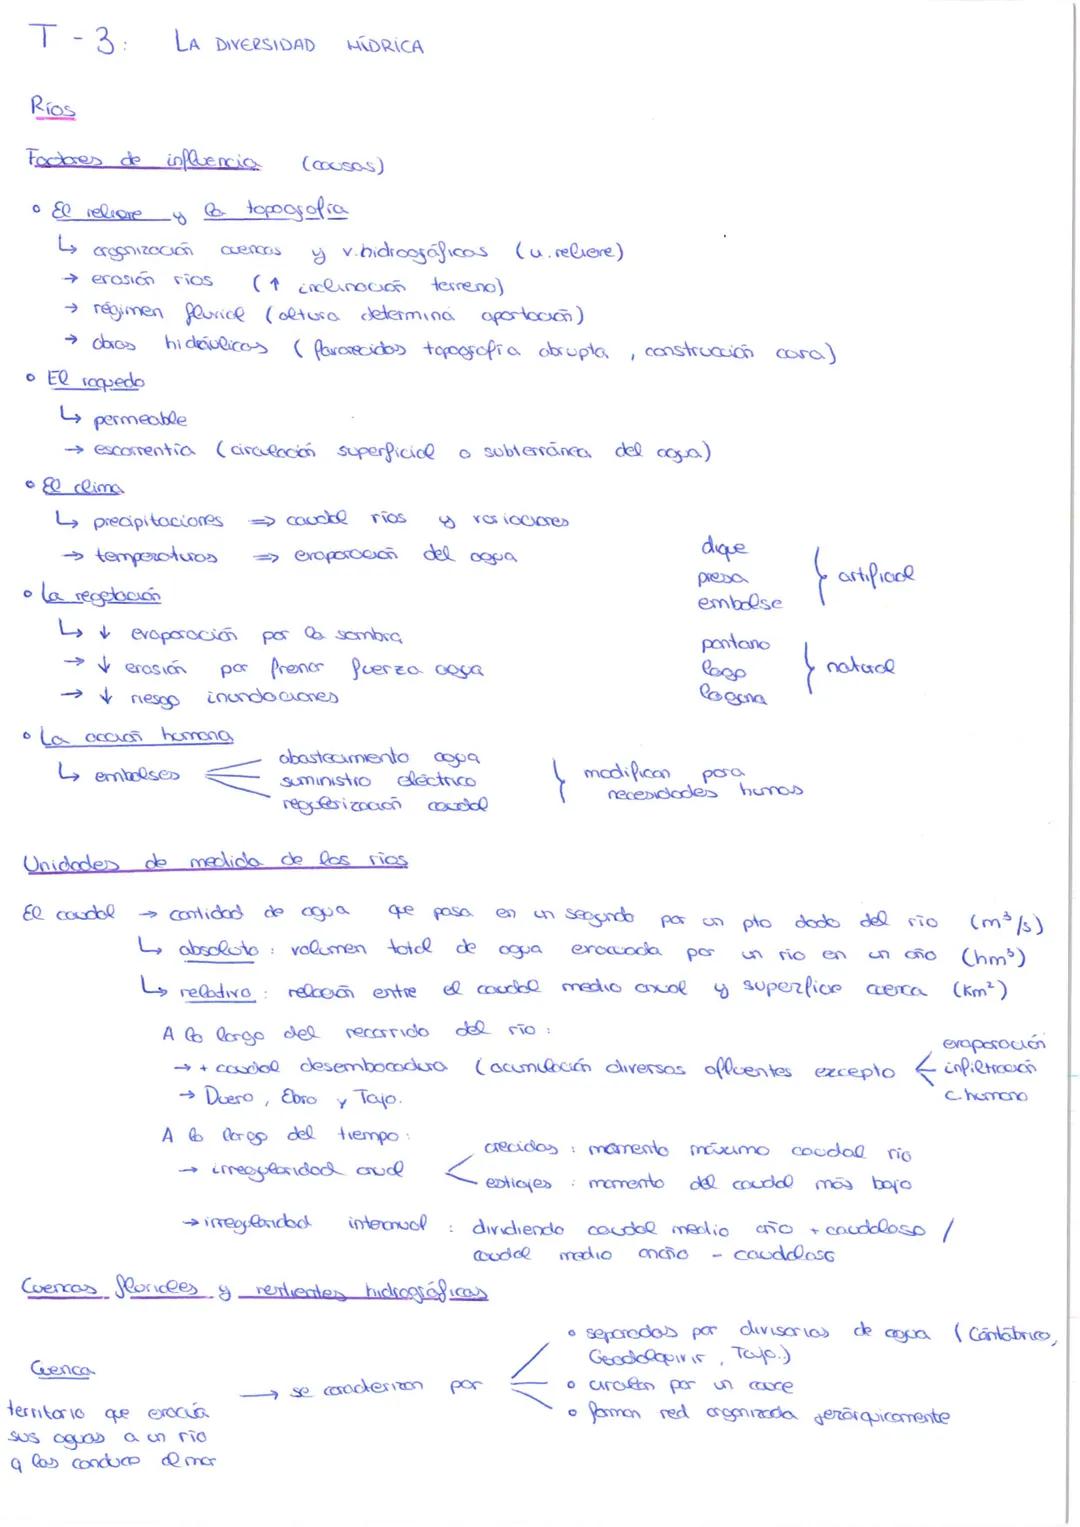 T - 3: LA DIVERSIDAD HÍDRICA
Ríos
Factores de influencia (causas)
• El relieve y la topografía
↳ organización cuencas y v.hidrográficas (u.relieve)
→ erosión ríos (↑ inclinación terreno)
→ régimen fluvial (altura determina aportación)
→ obras hidráulicas (favorecidas topografía abrupta, construcción cara)
• El roquedo
↳ permeable
→ escorrentía (circulación superficial o subterránea del agua)
• El clima
↳ precipitaciones ⇒ caudal ríos y variaciones
→ temperaturas ⇒ evaporación del agua
dique
presa
embalse
} artificial
pantano
lago
laguna
} natural
• La vegetación
↳ ↓ evaporación por la sombra
→ ↓ erosión por frenar fuerza agua
→ ↓ riesgo inundaciones
• La acción humana
↳ embalses
abastecimiento agua
suministro eléctrico
regularización caudal
} modifican para
necesidades humas
Unidades de medida de los ríos
El caudal → cantidad de agua que pasa en un segundo por un pto dado del río (m³/s)
↳ absoluto: volumen total de agua evacuada por un río en un año (hm³)
↳ relativo: relación entre el caudal medio anual y superficie cuenca (km²)
A lo largo del recorrido del río:
→ + caudal desembocadura (acumulación diversos afluentes excepto
evaporación
infiltración
c.humano
→ Duero, Ebro y Tajo.
A lo largo del tiempo:
→ irregularidad anual
crecidas: momento máximo caudal río
estiajes: momento del caudal más bajo
→ irregularidad interanual: dividiendo caudal medio año + caudaloso /
caudal medio año - caudaloso
Cuencas fluviales y vertientes hidrográficas
Cuenca
territorio que evacúa
sus aguas a un río
q las conduce al mar
→ se caracterizan por
• separadas por divisorias de agua (Cantábrico,
Guadalquivir, Tajo.)
• circulan por un cauce
• forman red organizada jerárquicamente